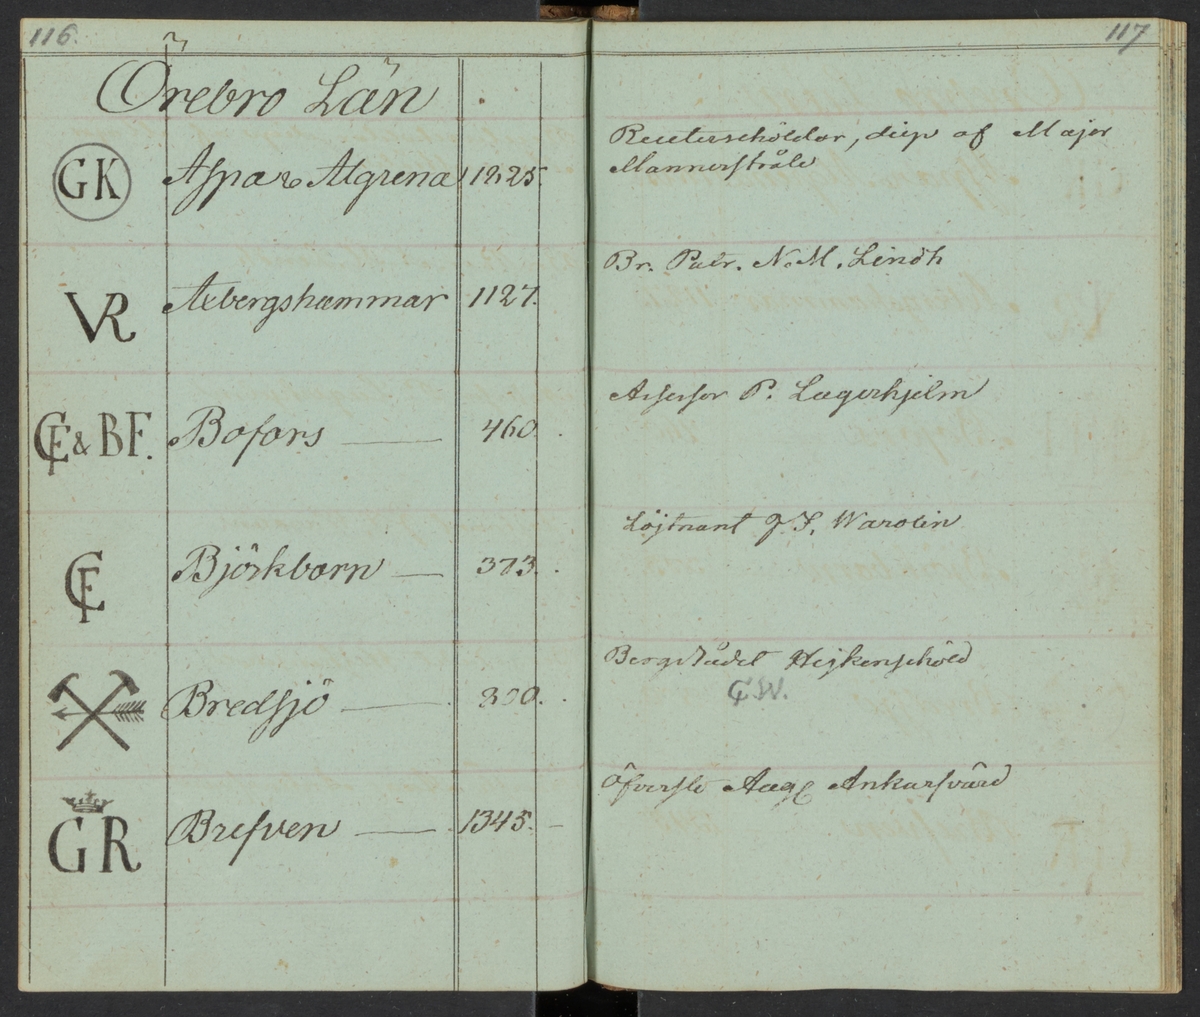 116.
117
Örebro Län
GK Aspa & Algrena 1225.
Reuterschöldar, disp af Major
Mannerstråle
VR Aebergshammar 1127.
Br. Patr. N. M. Lindh
CF & BF. Bofors 460.
Assessor P. Lagerhjelm
CF Björkborn 373.
Löjtnant J. S. Warolin
Bredsjö 300.
Bergsrådet Heijkenschöld
CW.
GR Brefven 1345.
Öfverste Aug Ankarsvärd